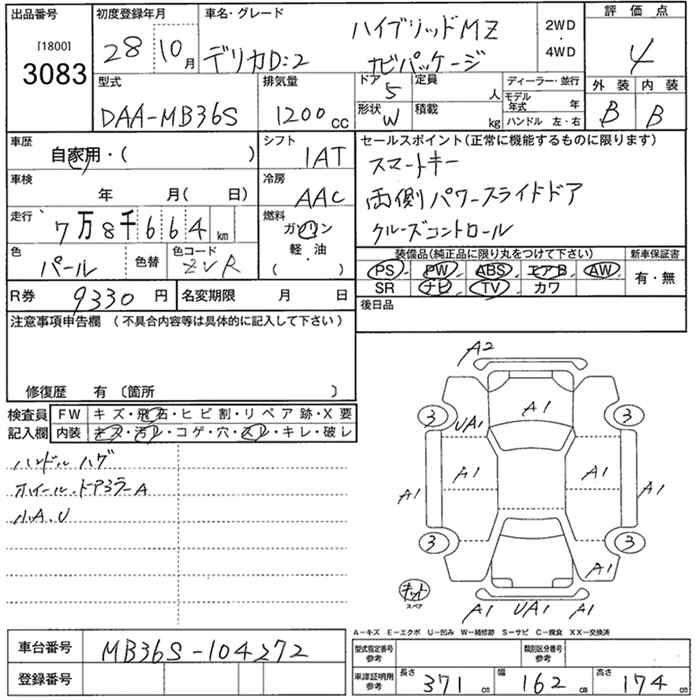 出品番号 初度登録年月 車名・グレード 2WD・4WD 評価点
[1800] 28 10月 デリカD:2 ハイブリッドMZ 4
3083 ナビパッケージ
型式 排気量 ドア 5 定員 人 ディーラー・並行 外装 内装
DAA-MB36S 1200cc 形状 W 積載 kg モデル年式 年 B B
ハンドル 左・右
車歴 シフト セールスポイント(正常に機能するものに限ります)
自家用・( ) IAT スマートキー
車検 冷房
年 月( 日) AAC 両側パワースライドドア
走行 燃料
7万8千664km ガソリン クルーズコントロール
軽・油
色 色替 色コード ( ) 装備品(純正品に限り丸をつけて下さい) 新車保証書
パール ZVR PS PW ABS エアB AW 有・無
SR ナビ TV カワ
R券 9330円 名変期限 月 日 後日品
注意事項申告欄(不具合内容等は具体的に記入して下さい)
修復歴 有〔箇所 〕
検査員 FW キズ・飛石・ヒビ割・リペア跡・X要
記入欄 内装 キズ・汚レ・コゲ・穴・スレ・キレ・破レ
ハンドルハゲ
ホイール、ドアミラーA
小A、U
A2
A1
3 3
UA1
A1 A1
A1 A1
3 3
A1
キット
スペア
A1 UA1 A1
A-キズ E-エクボ U-凹み W-補修跡 S-サビ C-腐食 XX-交換済
車台番号 MB36S-104272 型式指定番号 参考 類別区分番号 参考
登録番号 車庫証明用 参考 長さ 371cm 幅 162cm 高さ 174cm